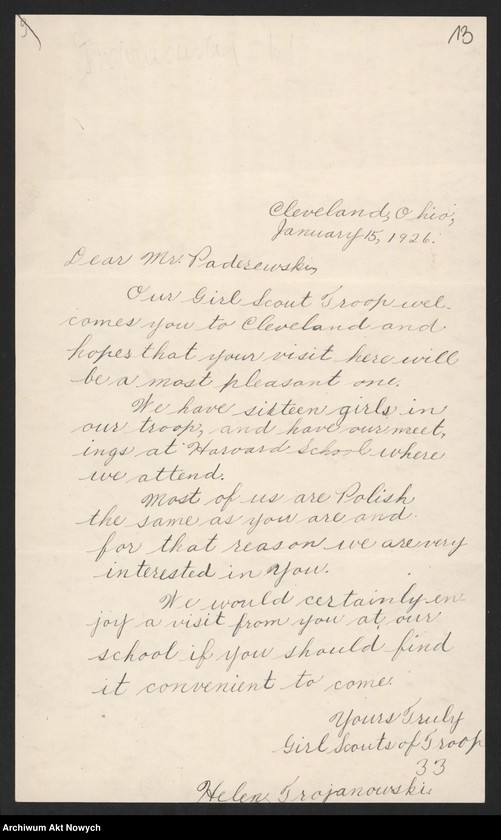 13
Cleveland, Ohio,
January 15, 1926.
Dear Mr. Paderewski,
Our Girl Scout Troop wel-
comes you to Cleveland and
hopes that your visit here will
be a most pleasant one.
We have sixteen girls in
our troop, and have our meet,
ings at Harvard School where
we attend.
Most of us are Polish
the same as you are and
for that reason we are very
interested in you.
We would certainly en-
joy a visit from you at our
school if you should find
it convenient to come.
Yours Truly
Girl Scouts of Troop
33
Helen Trojanowski
Archiwum Akt Nowych